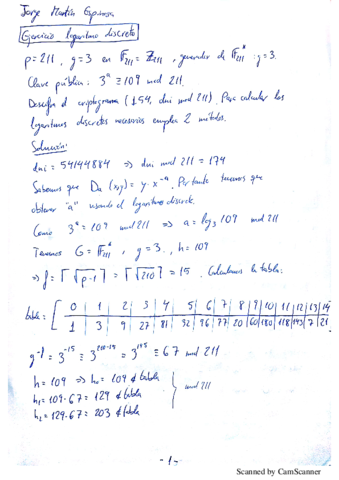 Jorge Martín Espinosa
Ejercicio logaritmo discreto
p=211, g=3 en F₂₁₁ = Z₂₁₁, generador de F*₂₁₁ : g=3.
Clave pública: 3ᵃ ≡ 109 mod 211.
Descifra el criptograma (154, dni mod 211). Para calcular los
logaritmos discretos necesarios emplea 2 métodos.
Solución:
dni = 54144884 ⇒ dni mod 211 = 174
Sabemos que Da (x,y) = y · x⁻ᵃ. Por tanto tenemos que
obtener "a" usando el logaritmo discreto.
Como 3ᵃ = 109 mod 211 ⇒ a = log₃ 109 mod 211
Tenemos G = F*₂₁₁, g = 3, h = 109
⇒ f = ⌈√p-1⌉ = ⌈√210⌉ = 15. Calculamos la tabla:
tabla: 0 1 2 3 4 5 6 7 8 9 10 11 12 13 14
1 3 9 27 81 32 96 77 20 60 180 118 143 7 21
g⁻ᶠ = 3⁻¹⁵ ≡ 3²¹⁰⁻¹⁵ = 3¹⁹⁵ ≡ 67 mod 211
h = 109 ⇒ h₀ = 109 ∉ tabla
h₁ = 109·67 = 129 ∉ tabla
h₂ = 129·67 = 203 ∉ tabla
mod 211
-1-
Scanned by CamScanner